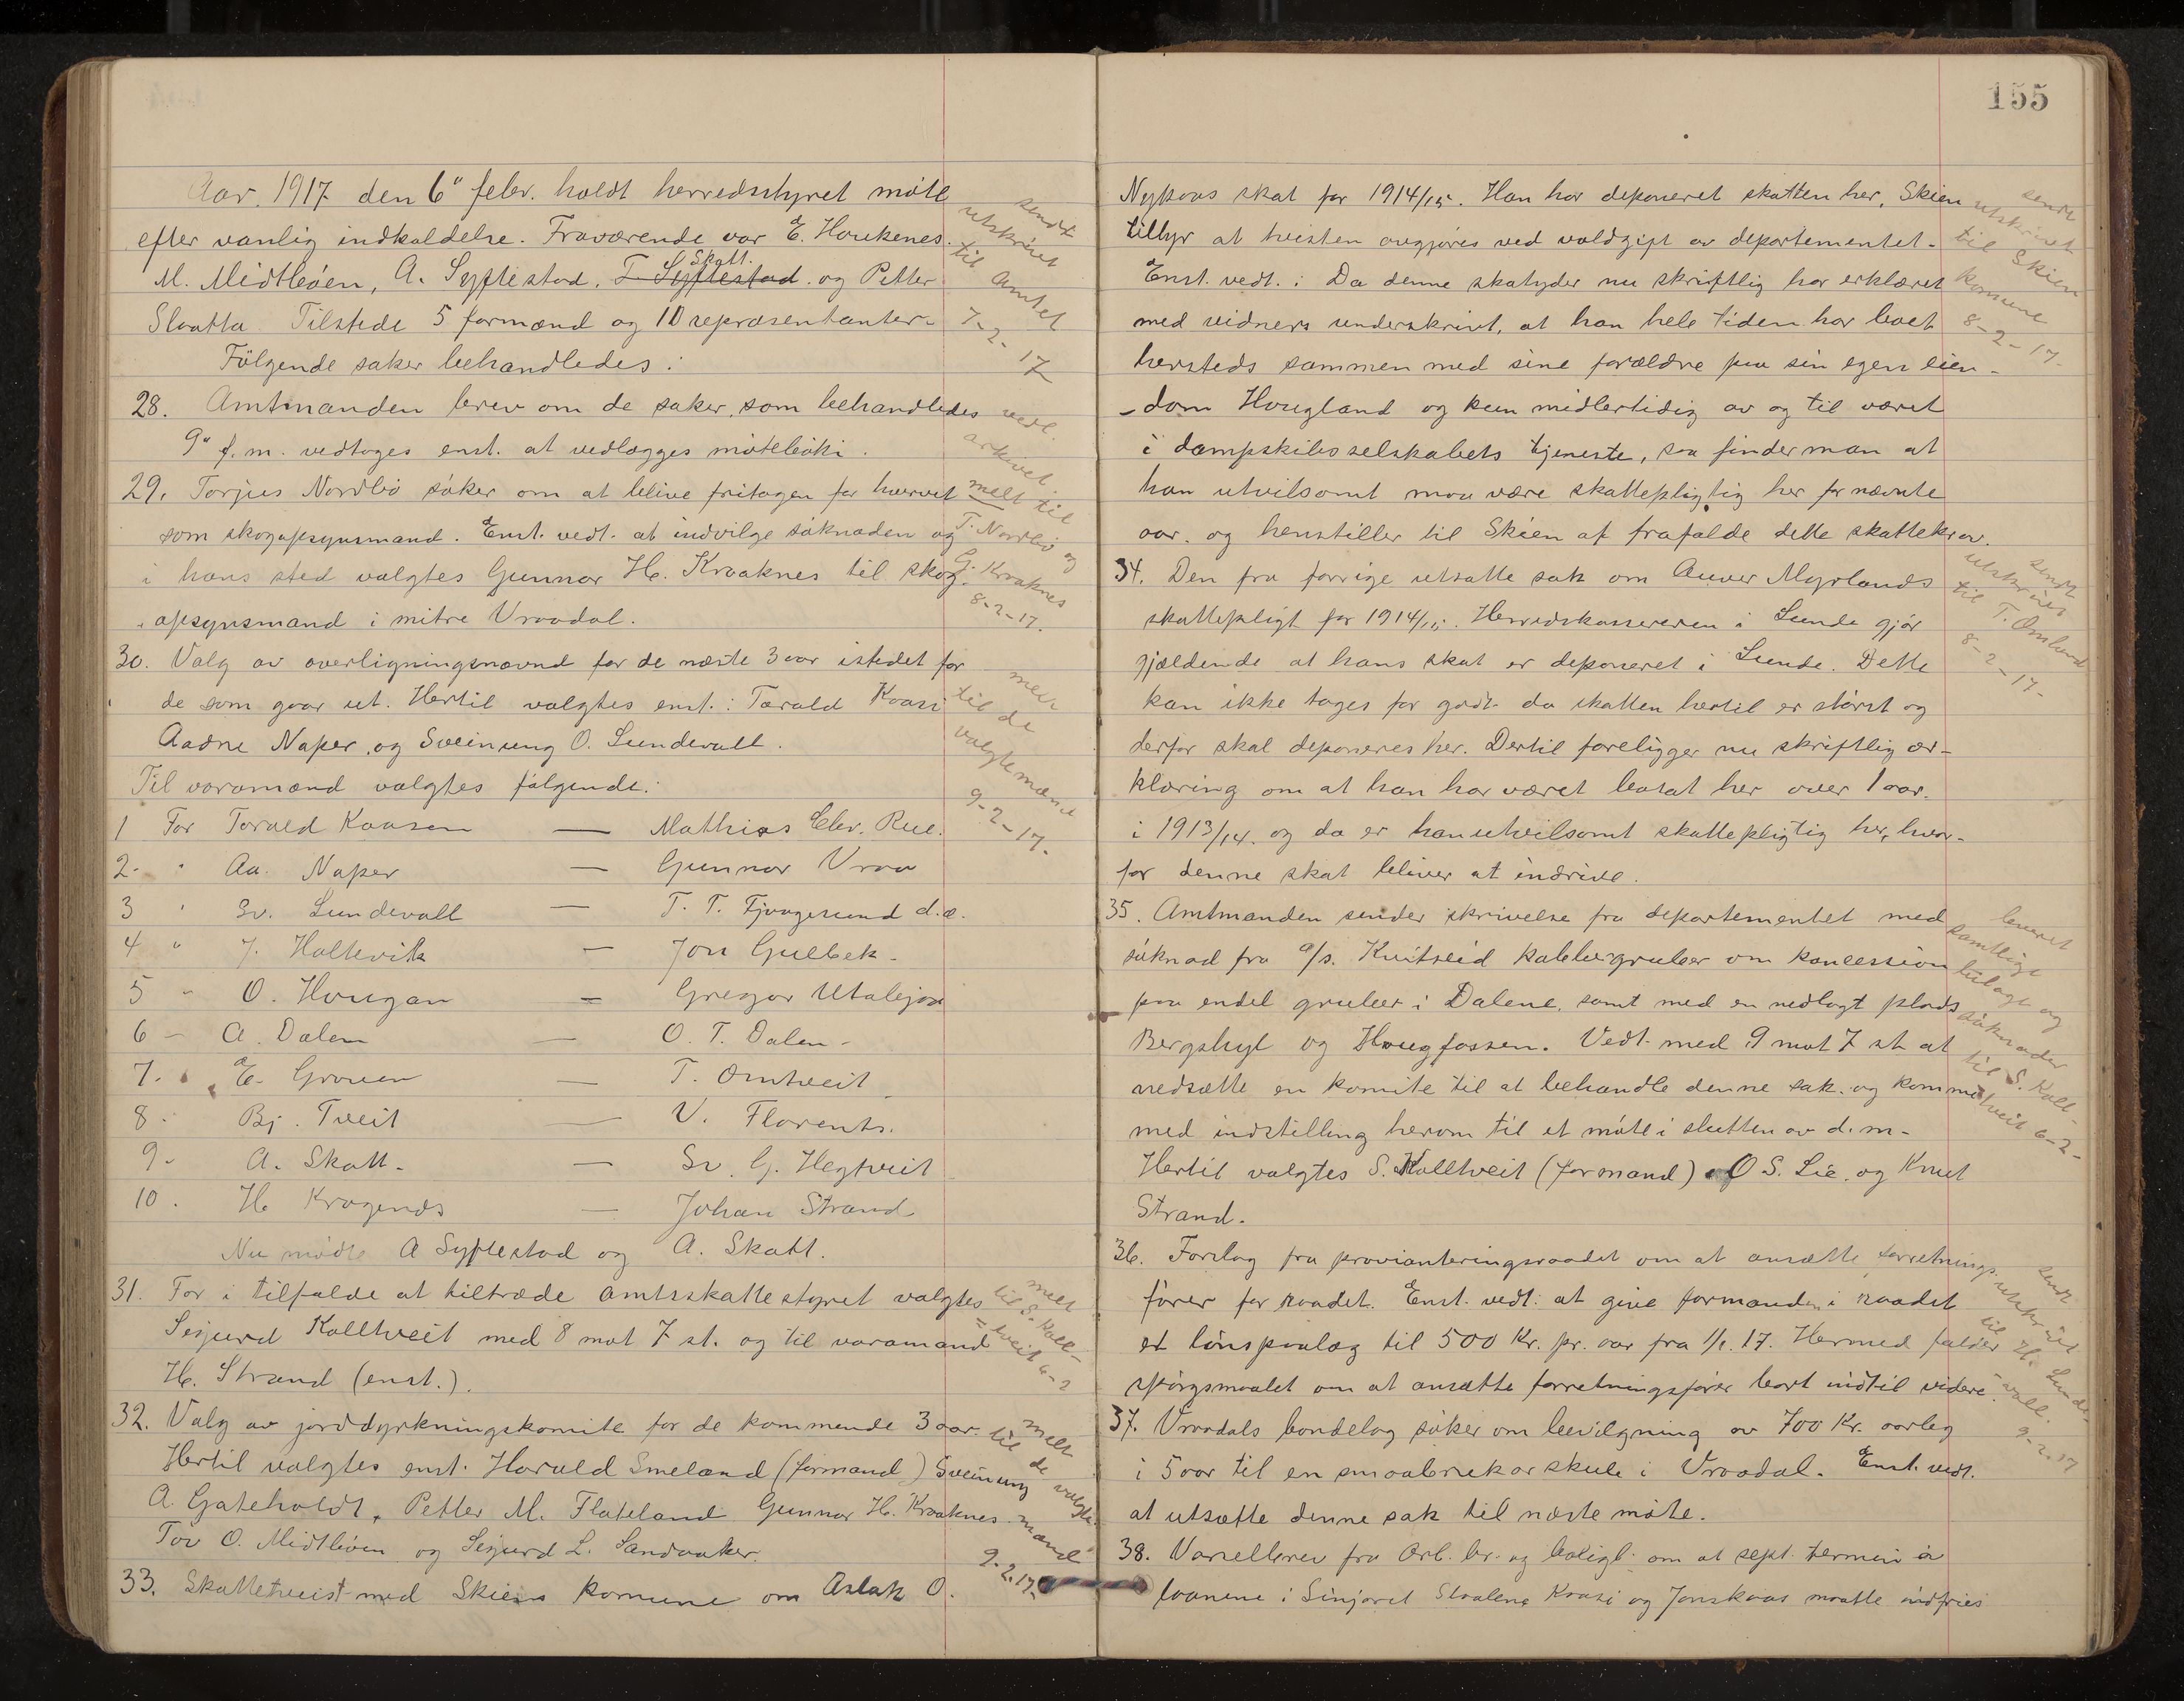 Aar. 1917 den 6" febr. holdt herredsstyret møte
efter vanlig indkaldelse. Fraværende var E. Haukenes.
M. Midtbøen, A. Syftestad, T. Syftestad. Skott. og Petter
Slaatta. Tilstede 5 formænd og 10 repræsentanter.
Følgende saker behandledes:
sendt
utskrivt
til Amtet
7-2-17
28. Amtmanden brev om de saker, som behandledes
9" f. m. vedtoges enst. at vedlægges møteboki.
vedl.
arkivet.
29. Torjus Nordbø søker om at blive fritagen for hvervet
som skogopsynsmand. Enst. vedt. at indvilge søknaden og
i hans sted valgtes Gunnar H. Kraaknes til skog-
opsynsmand i mitre Vraadal.
melt til
T. Nordbø og
G. Kraknes
8-2-17.
30. Valg av overligningsnævnd for de næste 3 aar istedet for
de som gaar ut. Hertil valgtes enst.: Tarald Kaasi
Aadne Naper, og Sveinung O. Lundevall.
Til varamænd valgtes følgende:
melt
til de
valgte mænd
9-2-17.
1 For Tarald Kaasen — Mathias Elev. Rue.
2. " Aa. Naper — Gunnar Vraa
3 " Sv. Lundevall — T. T. Fjaagesund d.e.
4 " J. Haltevik — Jon Gulbek.
5 " O. Haugan — Gregar Utabjaa
6 — A. Dalen — O. T. Dalen.
7. E. Groven — T. Omtveit
8. Bj. Tveit — V. Florents.
9. A. Skott. — Sv. G. Hegtveit
10. H. Kragenes — Johan Strand
Nu mødte A Syftestad og A. Skott.
31. For i tilfælde at tiltræde amtsskattestyret valgtes
Sigurd Kolltveit med 8 mot 7 st. og til varamand
H. Strand (enst.).
melt
til S. Koll-
tveit 6-2
32. Valg av jorddyrkningskomite for de kommende 3 aar.
Hertil valgtes enst. Harald Smeland (formand) Sveinung
A Gateholdt, Petter M. Flateland Gunnar H. Kraaknes.
Tov O. Midtbøen og Sigurd L. Sandaaker.
melt
til de
valgte
mænd
9.2.17.
33. Skattetvist med Skiens komune om Aslak O.
155
Nykaas skat for 1914/15. Han har deponeret skatten her, Skien
tilbyr at tvisten avgjøres ved voldgift av departementet.
Enst. vedt.: Da denne skatyder nu skriftlig har erklæret
med vidners underskrivt, at han hele tiden har boet
hersteds sammen med sine forældre paa sin egen eien-
dom Haugland og kun midlertidig av og til været
i dampskibsselskabets tjeneste, saa finder man at
han utvilsomt maa være skattepligtig her for nævnte
aar. og henstiller til Skien at frafalde dette skattekrav.
sendt
utskrivt
til Skien
komune
8-2-17.
34. Den fra forrige utsatte sak om Anver Myrlands
skattepligt for 1914/15. Herredskassereren i Lunde gjør
gjældende at hans skat er deponeret i Lunde. Dette
kan ikke tages for godt da skatten hertil er størst og
derfor skal deponeres her. Dertil foreligger nu skriftlig er-
klæring om at han har været bosat her over 1 aar.
i 1913/14. og da er han utvilsomt skattepligtig her, hvor-
for denne skat bliver at indrive.
sendt
utskrivt
til T. Omland
8-2-17.
35. Amtmanden sender skrivelse fra departementet med
søknad fra A/s. Kvitseid kobbergruber om koncession
paa endel gruber i Dalene, samt med en nedlagt plads
Bergshyl og Haugfossen. Vedt. med 9 mot 7 st at
nedsætte en komite til at behandle denne sak. og komme
med indstilling herom til et møte i slutten av d. m.
Hertil valgtes S. Kolltveit (formand) O S. Lie, og Knut
Strand.
leveret
samtlige
bilage og
søknader
til S. Koll-
tveit 6-2-
36. Forslag fra provianteringsraadet om at ansætte forretnings-
fører for raadet. Enst. vedt. at give formanden i raadet
et lønspaalæg til 500 Kr. pr. aar fra 1/1. 17. Hermed falder
spørgsmaalet om at ansætte forretningsfører bort indtil videre.
sendt
utskrivt
til H. Lunde-
vall.
9-2.17
37. Vraadals bondelag søker om bevilgning av 700 Kr. aarleg
i 5 aar til en smaabrukarskule i Vraadal. Enst. vedt.
at utsætte denne sak til næste møte.
38. Varselbrev fra Arb. br. og boligb. om at sept. termin a
laanene i Sinjaret Straalene Kaasi og Jonskaas maatte indfries